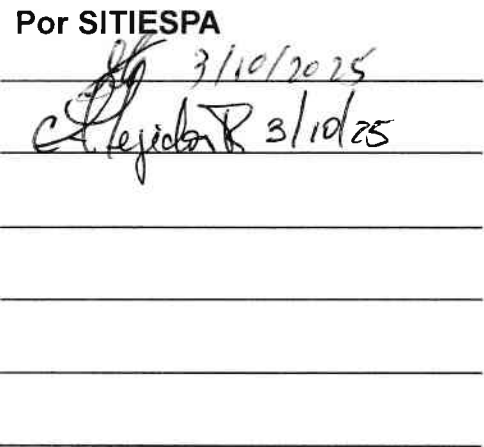 Por SITIESPA
3/10/2025
A. Tejidor R 3/10/25